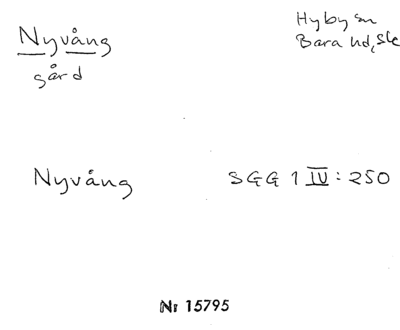 Nyvång
gård
Hyby sn
Bara hd, Sk
Nyvång
SGG 1 IV: 250
Nr 15795